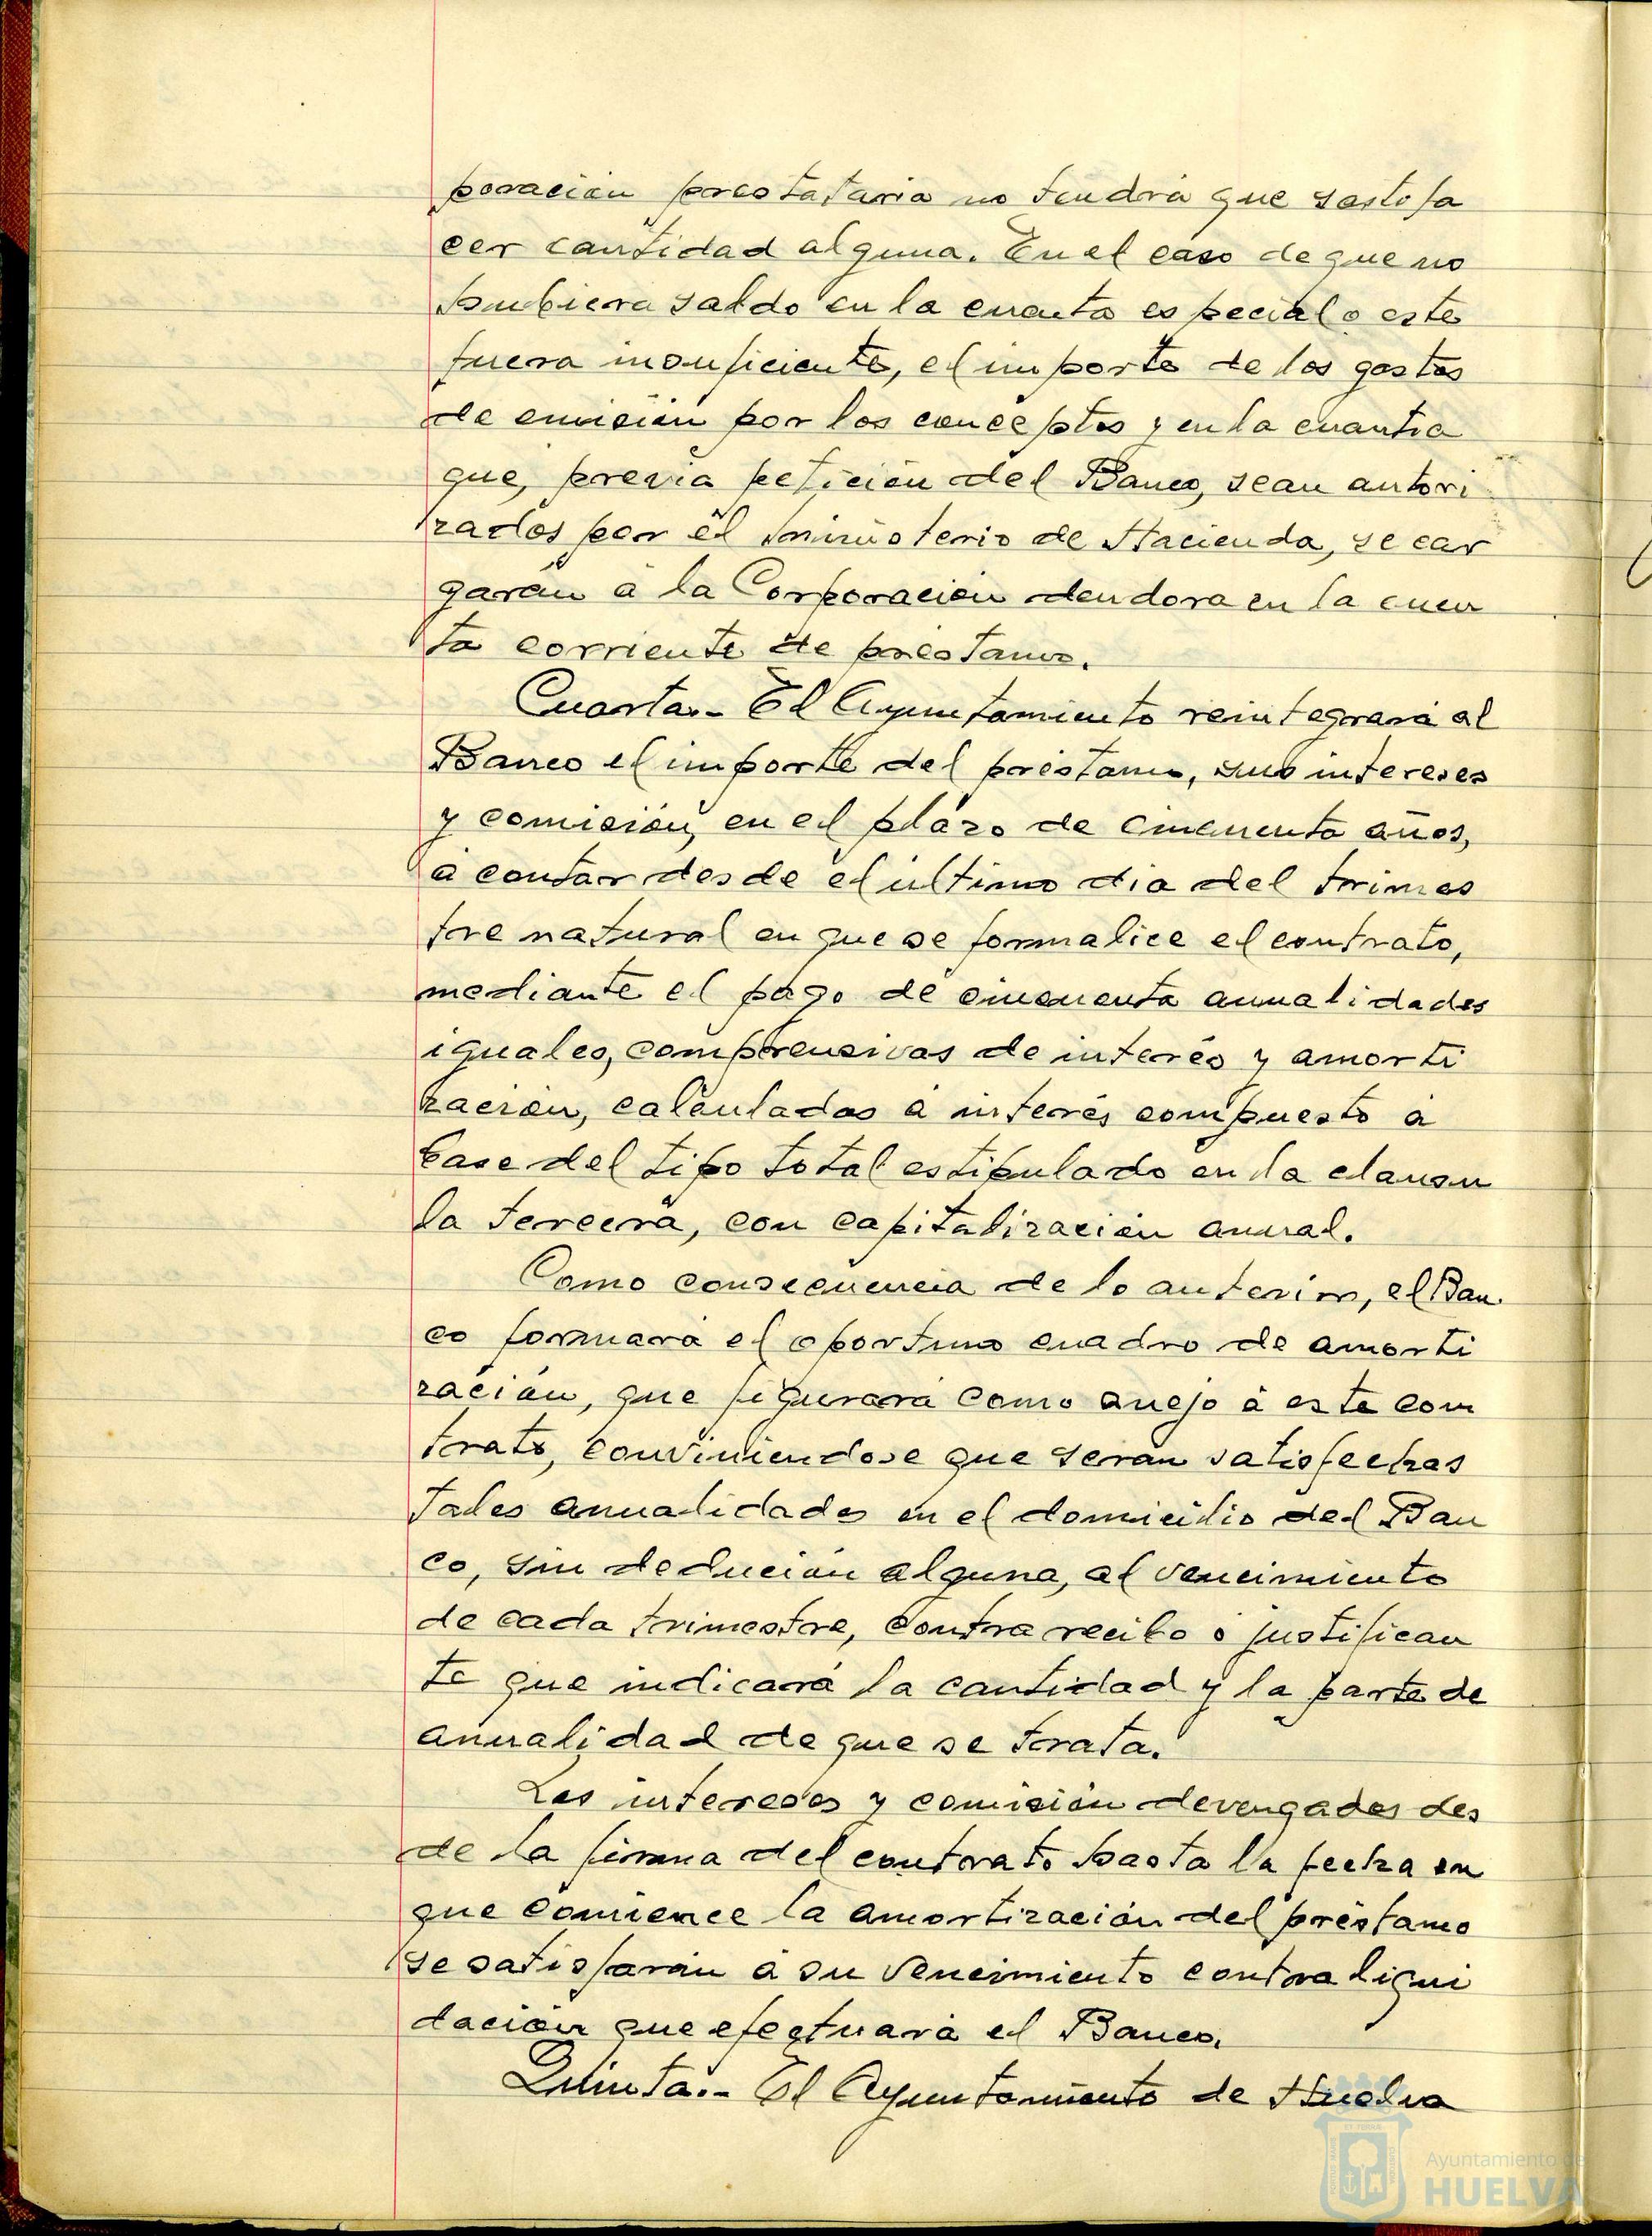 poración prestataria no tendrá que sastisfa
cer cantidad alguna. En el caso de que no
hubiera saldo en la cuenta especial o este
fuera insuficiente, el importe de los gastos
de emisión por los conceptos y en la cuantia
que, previa petición del Banco, sean autori
zados por el Ministerio de Hacienda, se car
garán á la Corporación deudora en la cuen
ta corriente de préstamo.
Cuarta.- El Ayuntamiento reintegrará al
Banco el importe del préstamo, sus intereses
y comisión, en el plazo de cincuenta años,
á contar desde el último dia del trimes
tre natural en que se formalice el contrato,
mediante el pago de cincuenta anualidades
iguales, comprensivas de interés y amorti
zación, calculadas á interés compuesto á
base del tipo total estipulado en la clausu
la tercera, con capitalización anual.
Como consecuencia de lo anterior, el Ban
co formará el oportuno cuadro de amorti
zación, que figurará como anejo á este con
trato, conviniendose que serán satisfechas
tales anualidades en el domicilio del Ban
co, sin deducion alguna, al vencimiento
de cada trimestre, contra recibo ó justifican
te que indicará la cantidad y la parte de
anualidad de que se trata.
Los intereses y comisión devengados des
de la firma del contrato hasta la fecha en
que comience la amortización del préstamo
se satisfarán á su vencimiento contra liqui
dación que efectuará el Banco.
Quinta.- El Ayuntamiento de Huelva
Ayuntamiento de
HUELVA